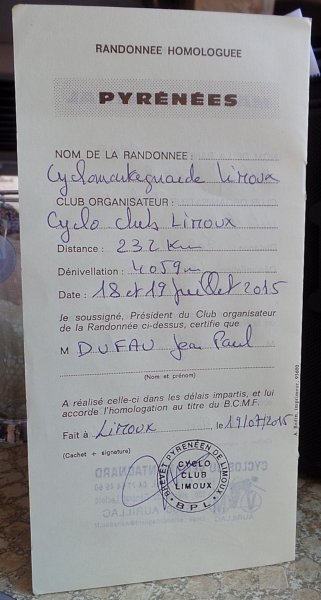 RANDONNEE HOMOLOGUEE
PYRÉNÉES
NOM DE LA RANDONNEE :
Cyclomontagnarde Limoux
CLUB ORGANISATEUR :
Cyclo club Limoux
Distance : 232 Km
Dénivellation : 4059m
Date : 18 et 19 Juillet 2015
Je soussigné, Président du Club organisateur
de la Randonnée ci-dessus, certifie que
M DUFAU Jean Paul
(Nom et prénom)
A réalisé celle-ci dans les délais impartis, et lui
accorde l'homologation au titre du B.C.M.F.
Fait à Limoux, le 19/07/2015
(Cachet + signature)
BREVET PYRENEEN DE LIMOUX
CYCLO
CLUB
LIMOUX
B P L